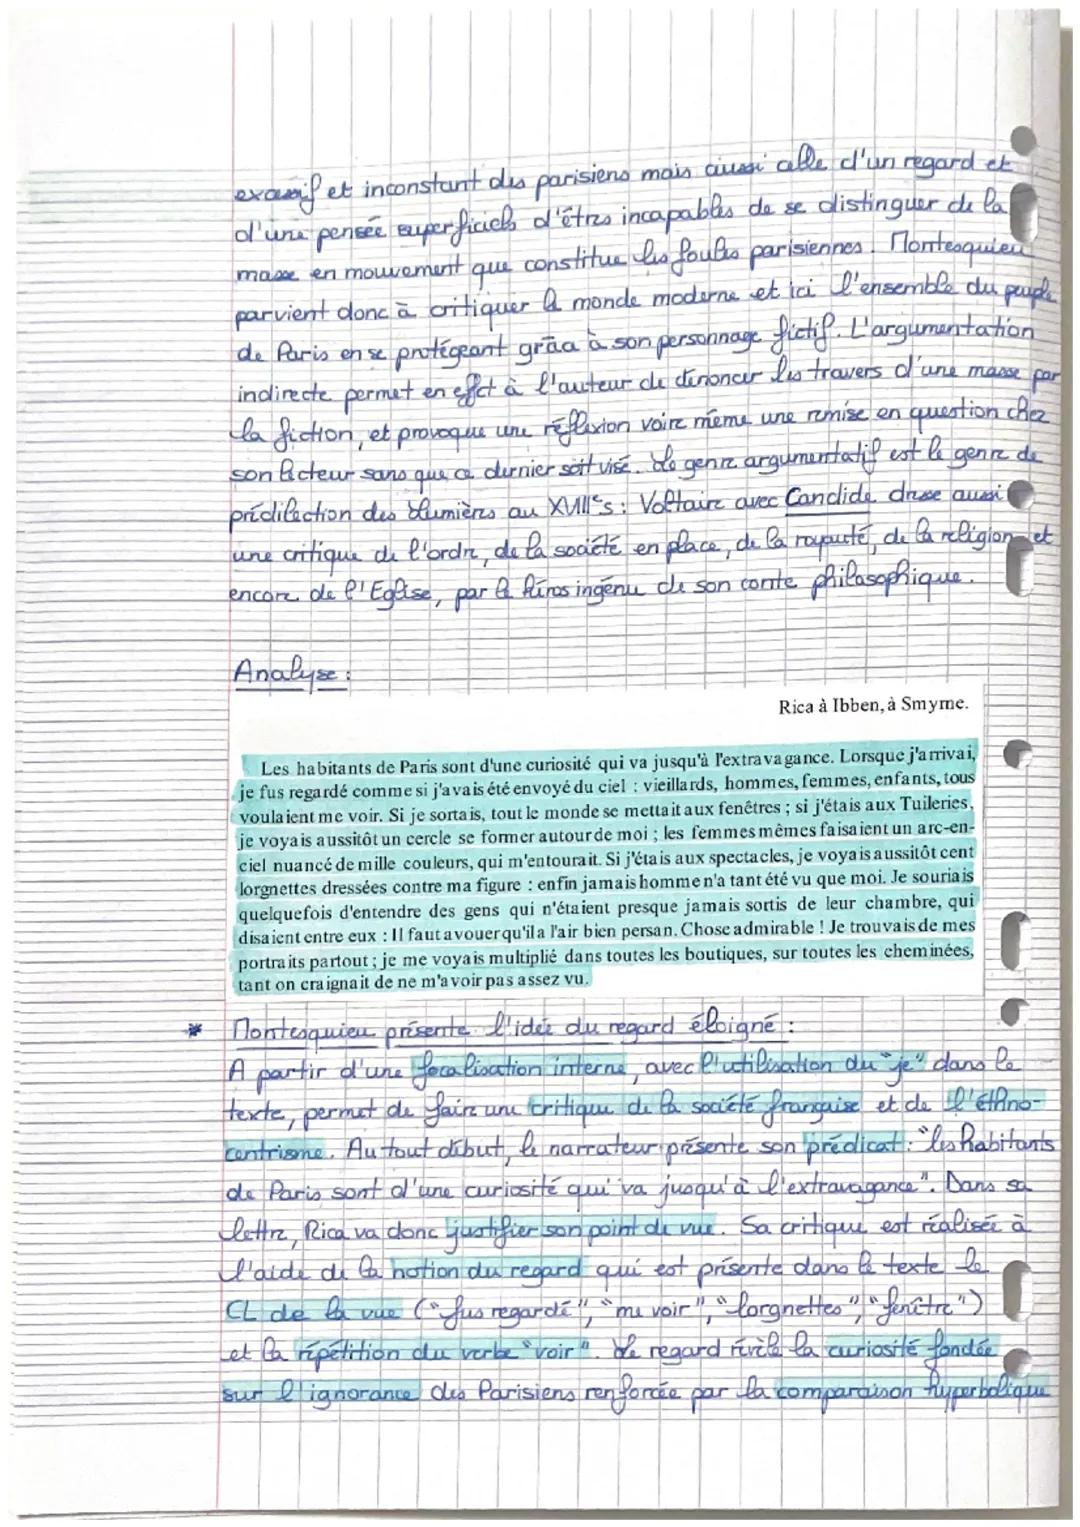 excessif et inconstant des parisiens mais aussi celle d'un regard et
d'une pensée superficiels d'êtres incapables de se distinguer de la
masse en mouvement que constitue les foules parisiennes. Montesquieu
parvient donc à critiquer le monde moderne et ici l'ensemble du peuple
de Paris en se protégeant grâce à son personnage fictif. L'argumentation
indirecte permet en effet à l'auteur de dénoncer les travers d'une masse par
la fiction, et provoque une réflexion voire même une remise en question chez
son lecteur sans que ce dernier soit visé. Le genre argumentatif est le genre de
prédilection des Lumières au XVIIIes : Voltaire avec Candide dresse aussi
une critique de l'ordre, de la société en place, de la royauté, de la religion et
encore de l'Eglise, par le héros ingénu de son conte philosophique.
Analyse :
Rica à Ibben, à Smyrne.
Les habitants de Paris sont d'une curiosité qui va jusqu'à l'extravagance. Lorsque j'arrivai,
je fus regardé comme si j'avais été envoyé du ciel : vieillards, hommes, femmes, enfants, tous
voulaient me voir. Si je sortais, tout le monde se mettait aux fenêtres ; si j'étais aux Tuileries,
je voyais aussitôt un cercle se former autour de moi ; les femmes mêmes faisaient un arc-en-
ciel nuancé de mille couleurs, qui m'entourait. Si j'étais aux spectacles, je voyais aussitôt cent
lorgnettes dressées contre ma figure : enfin jamais homme n'a tant été vu que moi. Je souriais
quelquefois d'entendre des gens qui n'étaient presque jamais sortis de leur chambre, qui
disaient entre eux : Il faut avouer qu'il a l'air bien persan. Chose admirable ! Je trouvais de mes
portraits partout ; je me voyais multiplié dans toutes les boutiques, sur toutes les cheminées,
tant on craignait de ne m'avoir pas assez vu.
* Montesquieu présente l'idée du regard éloigné :
A partir d'une focalisation interne, avec l'utilisation du "je" dans le
texte, permet de faire une critique de la société française et de l'éthno-
centrisme. Au tout début, le narrateur présente son prédicat : "les habitants
de Paris sont d'une curiosité qui va jusqu'à l'extravagance". Dans sa
lettre, Rica va donc justifier son point de vue. Sa critique est réalisée à
l'aide de la notion du regard qui est présente dans le texte le
CL de la vue ("fus regardé", "me voir", "lorgnettes", "fenêtre")
et la répétition du verbe "voir". Le regard révèle la curiosité fondée
sur l'ignorance des Parisiens renforcée par la comparaison hyperbolique